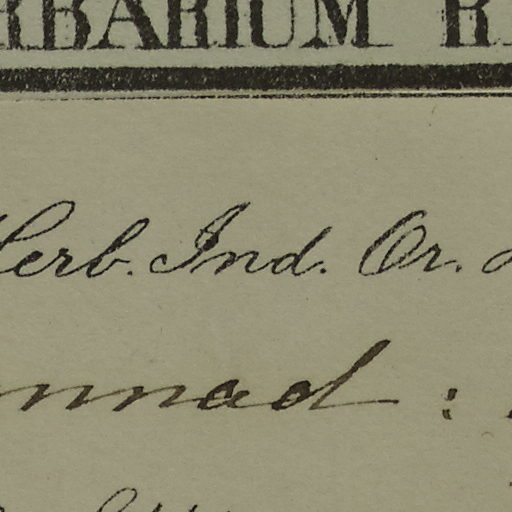 RBARIUM R
Herb. Ind. Or.
nnad :